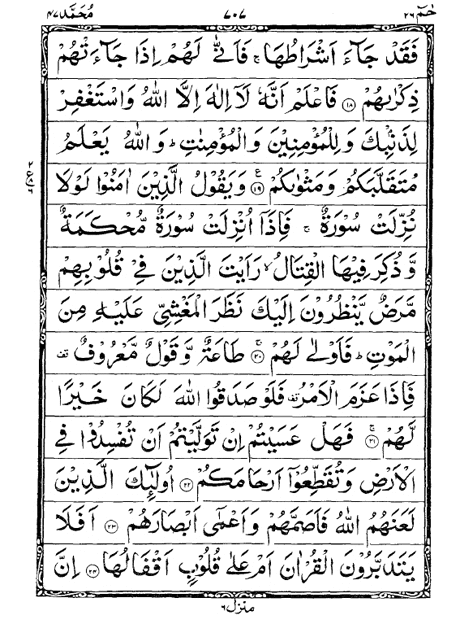 حٰمٓ ٢٦ ٧٠٧ مُحَمَّد ٤٧
فَقَدْ جَآءَ اَشْرَاطُهَا ۚ فَاَنّٰى لَهُمْ اِذَا جَآءَتْهُمْ
ذِكْرٰىهُمْ ﴿۱۸﴾ فَاعْلَمْ اَنَّهٗ لَاۤ اِلٰهَ اِلَّا اللّٰهُ وَاسْتَغْفِرْ
لِذَنْۢبِكَ وَ لِلْمُؤْمِنِيْنَ وَ الْمُؤْمِنٰتِ ؕ وَ اللّٰهُ يَعْلَمُ
مُتَقَلَّبَكُمْ وَ مَثْوٰىكُمْ ﴿۱۹﴾ ع وَ يَقُوْلُ الَّذِيْنَ اٰمَنُوْا لَوْلَا
نُزِّلَتْ سُوْرَةٌ ۚ فَاِذَاۤ اُنْزِلَتْ سُوْرَةٌ مُّحْكَمَةٌ
وَّ ذُكِرَ فِيْهَا الْقِتَالُ ۙ رَاَيْتَ الَّذِيْنَ فِيْ قُلُوْبِهِمْ
مَّرَضٌ يَّنْظُرُوْنَ اِلَيْكَ نَظَرَ الْمَغْشِيِّ عَلَيْهِ مِنَ
الْمَوْتِ ؕ فَاَوْلٰى لَهُمْ ﴿۲۰﴾ۚ طَاعَةٌ وَّ قَوْلٌ مَّعْرُوْفٌ قف
فَاِذَا عَزَمَ الْاَمْرُ قف فَلَوْ صَدَقُوا اللّٰهَ لَكَانَ خَيْرًا
لَّهُمْ ﴿۲۱﴾ۚ فَهَلْ عَسَيْتُمْ اِنْ تَوَلَّيْتُمْ اَنْ تُفْسِدُوْا فِي
الْاَرْضِ وَ تُقَطِّعُوْۤا اَرْحَامَكُمْ ﴿۲۲﴾ اُولٰٓئِكَ الَّذِيْنَ
لَعَنَهُمُ اللّٰهُ فَاَصَمَّهُمْ وَ اَعْمٰۤى اَبْصَارَهُمْ ﴿۲۳﴾ اَفَلَا
يَتَدَبَّرُوْنَ الْقُرْاٰنَ اَمْ عَلٰى قُلُوْبٍ اَقْفَالُهَا ﴿۲۴﴾ اِنَّ
منزل ٦